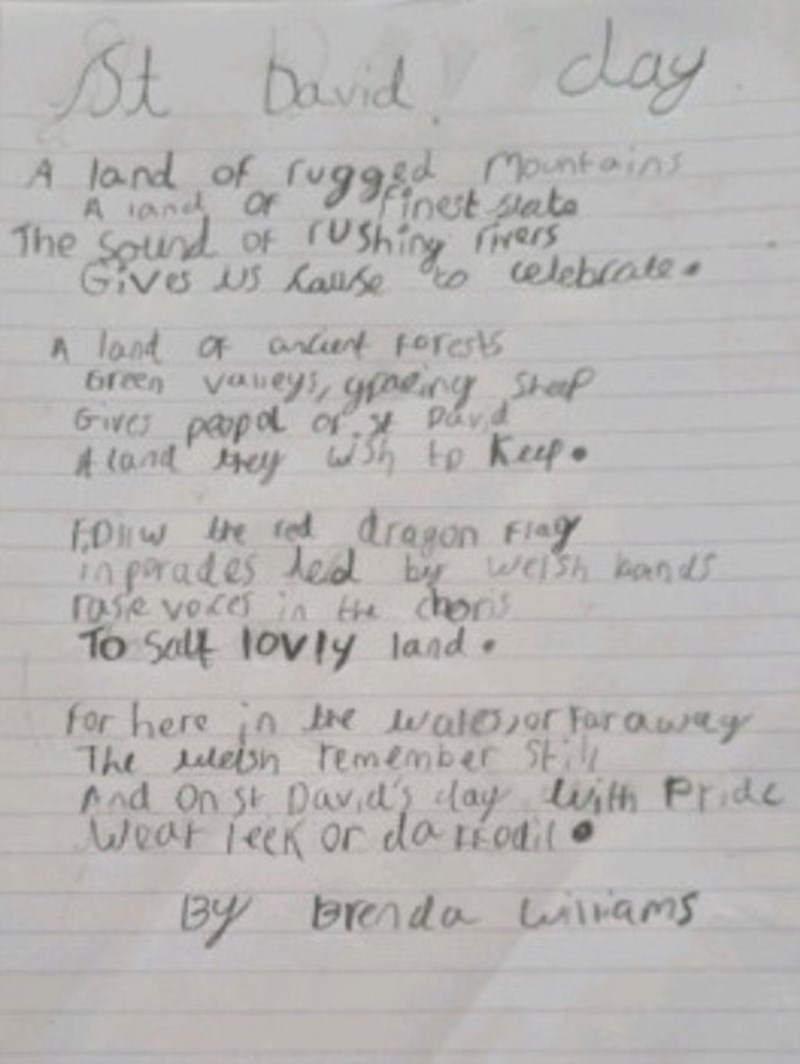 St David day
A land of rugged Mountains
A land of finest slate
The sound of rushing rivers
Gives us cause to celebrate.
A land of ancient forests
Green valleys, grazing sheep
Gives peopol of st David
A land they wish to Keep.
Follw the red dragon Flag
in parades led by welsh bands
rase voices in the choris
To salt lovly land.
For here in the wales, or Far away
The welsh remember still
And On St David's day with Pride
Wear leek or daffodil.
By Brenda Williams